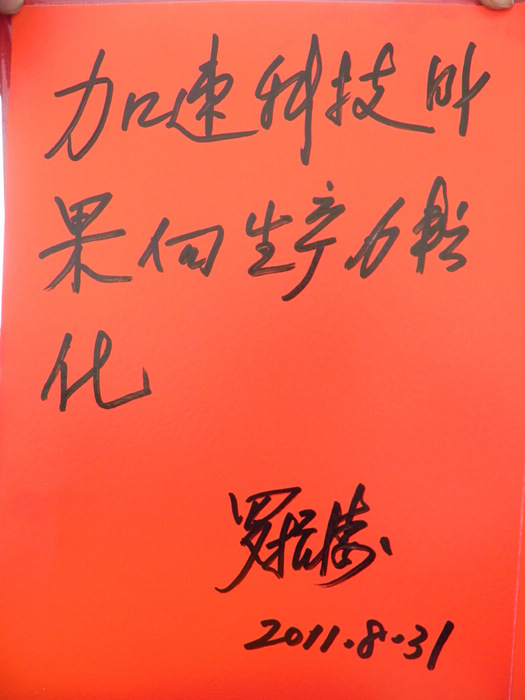 加速科技成
果向生产力转
化
罗
2011.8.31